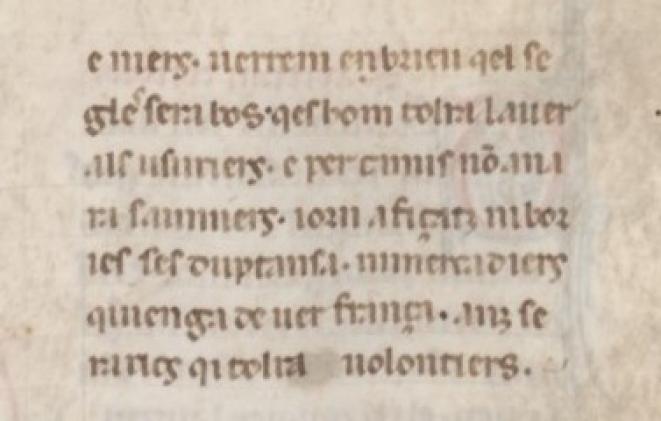 e niers· uerrem enbrieu qel se
gle sera bos· qes hom tolra lauer
als usuriers· e per camis nō ana
ra saumiers· iorn afiçatz ni bor
ies ses duptansa· nimercadiers
quienga de uer frança· anz se
ra rics qi tolra uolontiers.